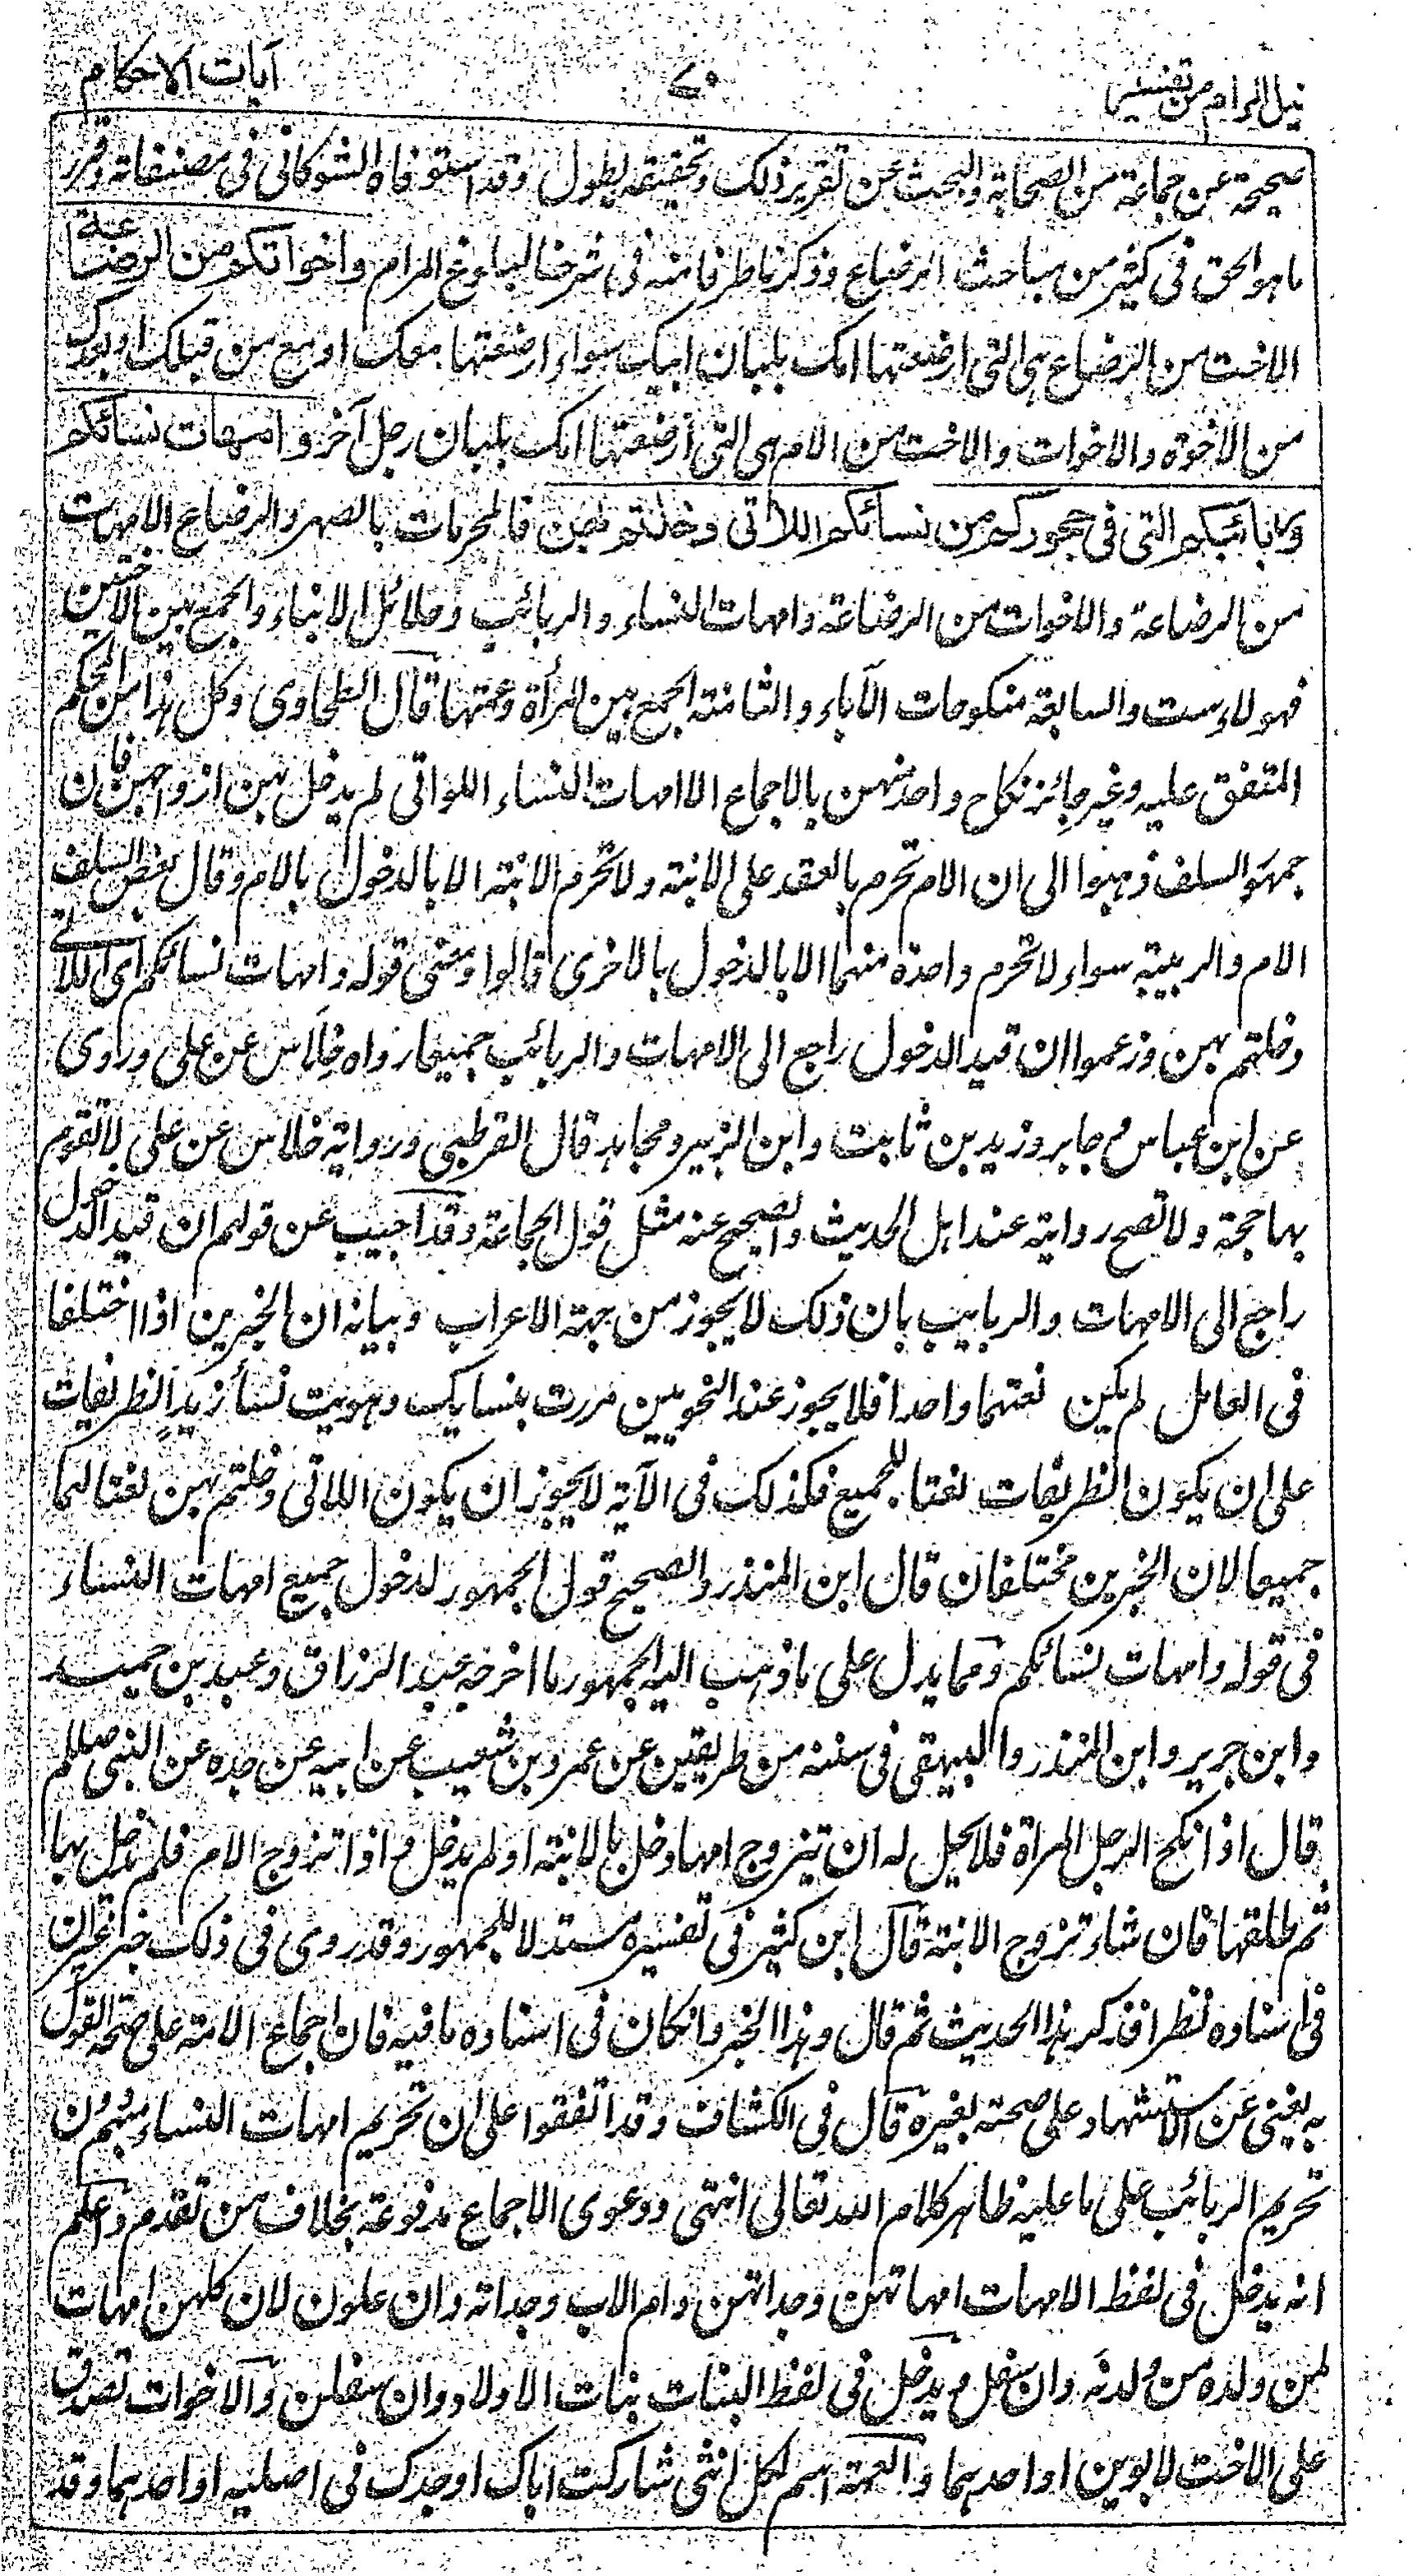 نيل المرام من تفسير
٧٠
آيات الاحكام
صحيحة عن جماعة من الصحابة والبحث عن تقرير ذلك وتحقيقه يطول وقد استوفاه الشوكانى فى مصنفاته وقرر
ما هو الحق فى كثير من مباحث الرضاع وذكرنا طرفا منه فى شرحنا لبلوغ المرام واخواتكم من الرضاعة
الاخت من الرضاع هى التى ارضعتها امك بلبان ابيك سواء ارضعتها معك او مع من قبلك او بعدك
من الاخوة والاخوات والاخت من الام هى التى ارضعتها امك بلبان رجل آخر وامهات نسائكم
وربائبكم التى فى حجوركم من نسائكم اللاتى دخلتم بهن فالمحرمات بالصهر والرضاع الامهات
من الرضاعة والاخوات من الرضاعة وامهات النساء والربائب وحلائل الابناء والجمع بين الاختين
فهولاء ست والسابعة منكوحات الآباء والثامنة الجمع بين المرأة وعمتها قال الطحاوى وكل هذا من المحكم
المتفق عليه وغير جائز نكاح واحد منهن بالاجماع الا امهات النساء اللواتى لم يدخل بهن ازواجهن فان
جمهور السلف ذهبوا الى ان الام تحرم بالعقد على الابنة ولا تحرم الابنة الا بالدخول بالام وقال بعض السلف
الام والربيبة سواء لا تحرم واحدة منهما الا بالدخول بالاخرى قالوا ومعنى قوله وامهات نسائكم اى اللاتى
دخلتم بهن وزعموا ان قيد الدخول راجع الى الامهات والربائب جميعا رواه خلاس عن على وروى
عن ابن عباس وجابر وزيد بن ثابت وابن الزبير ومجاهد قال القرطبى ورواية خلاس عن على لا تقوم
بها حجة ولا تصح رواية عند اهل الحديث والصحيح عنه مثل قول الجماعة وقد اجيب عن قولهم ان قيد الدخول
راجع الى الامهات والربايب بان ذلك لا يجوز من جهة الاعراب وبيانه ان الخبرين اذا اختلفا
فى العامل لم يكن نعتهما واحدا فلا يجوز عند النحويين مررت بنسايك وهويت نسأ زيدٍ الظريفات
على ان يكون الظريفات نعتا للجميع فكذلك فى الآية لا يجوز ان يكون اللاتى دخلتم بهن نعتا لهما
جميعا لان الخبرين مختلفان قال ابن المنذر والصحيح قول الجمهور لدخول جميع امهات النساء
فى قوله وامهات نسائكم ومما يدل على ما ذهب اليه الجمهور ما اخرجه عبد الرزاق وعبد بن حميد
وابن جرير وابن المنذر والبيهقى فى سننه من طريقين عن عمرو بن شعيب عن ابيه عن جده عن النبى صللم
قال اذا نكح الرجل المرأة فلا يحل له ان يتزوج امها دخل بالابنة او لم يدخل و اذا تزوج الام فلم يدخل بها
ثم طلقها فان شاء تزوج الابنة قال ابن كثير فى تفسيره مستدلا للجمهور وقد روى فى ذلك خبر غير ان
فى اسناده نظرا فذكر هذا الحديث ثم قال وهذا الخبر وان كان فى اسناده ما فيه فان اجماع الامة على صحة القول
به يغنى عن الاستشهاد على صحته بغيره قال فى الكشاف وقد اتفقوا على ان تحريم امهات النساء مبهم دون
تحريم الربائب على ما عليه ظاهر كلام الله تعالى انتهى ودعوى الاجماع مدفوعة بخلاف من تقدم واعلم
انه يدخل فى لفظ الامهات امهاتهن وجداتهن وام الاب وجداته وان علون لان كلهن امهات
لمن ولده من ولدنه وان سفل و يدخل فى لفظ البنات بنات الاولاد وان سفلن والاخوات تصدق
على الاخت لابوين او احدهما والعمة اسم لكل انثى شاركت اباك او جدك فى اصليه او احدهما وقد